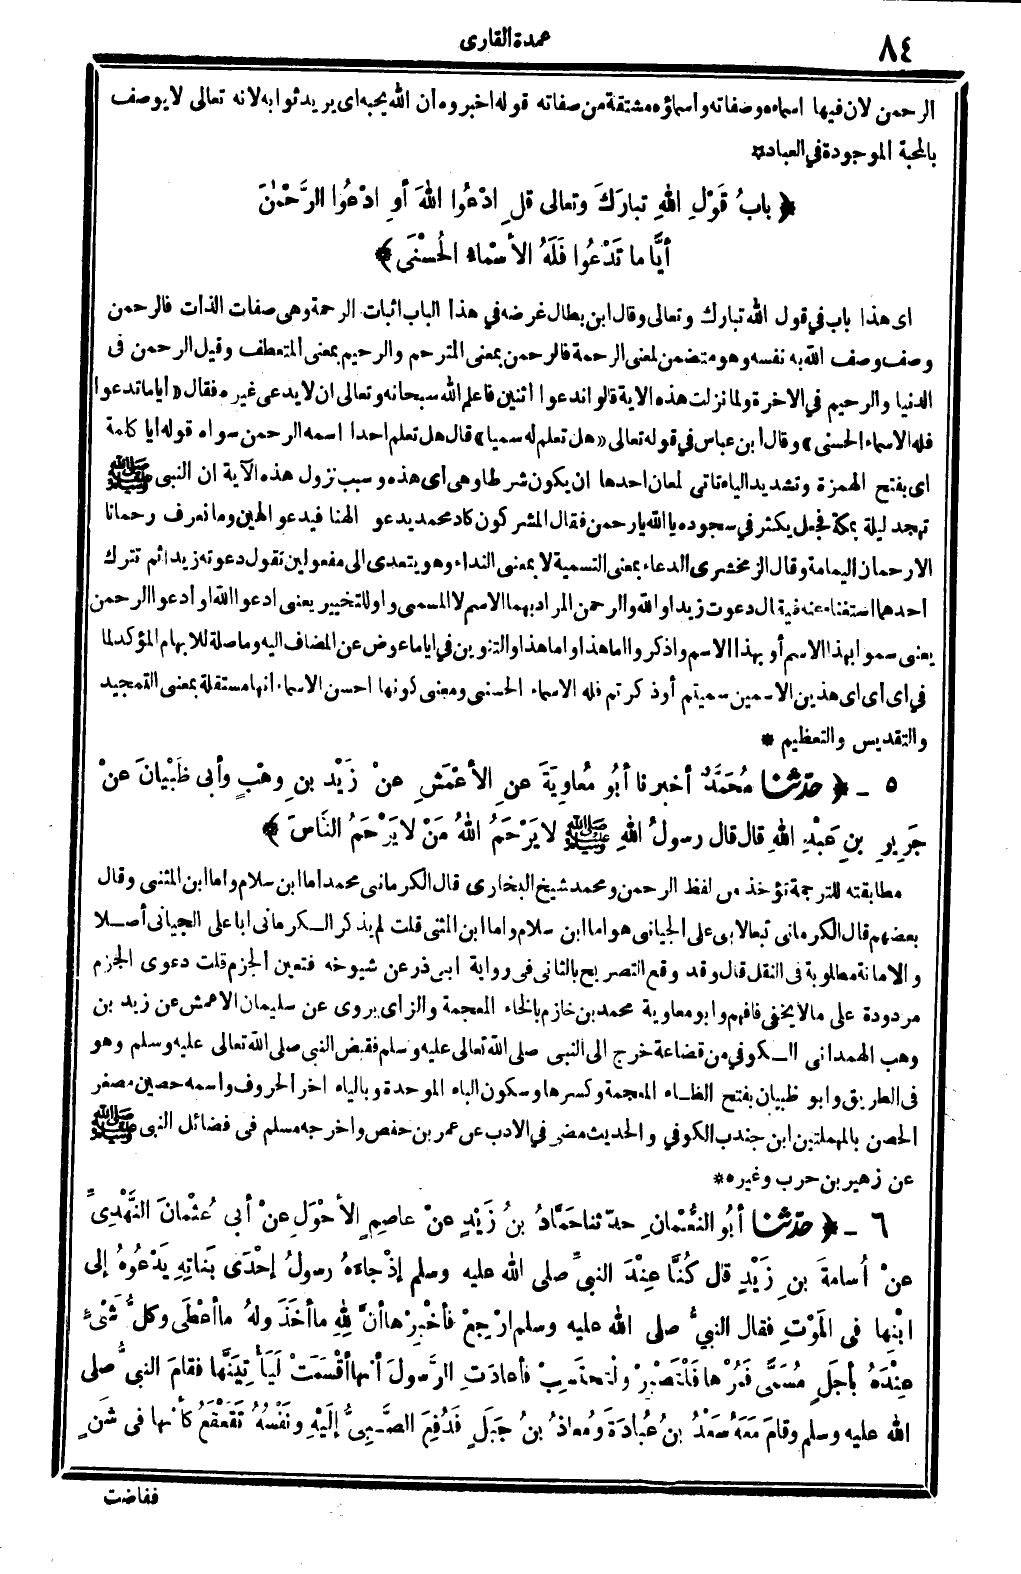 ٨٤
عمدة القارى
الرحمن لان فيها اسماءه وصفاته وأسماؤه مشتقة من صفاته قوله اخبروه أن الله يحبه اى يريد ثوابه لانه تعالى لا يوصف
بالمحبة الموجودة في العباد*
﴿ بابُ قَوْلِ اللهِ تبارَكَ وتعالى قلِ ادْعُوا اللهَ أوِ ادْعُوا الرَّحْمٰنَ
أيًّا ما تَدْعُوا فَلَهُ الأسْماء الحُسْنَى ﴾
اى هذا باب في قول الله تبارك وتعالى وقال ابن بطال غرضه في هذا الباب اثبات الرحمة وهى صفات الذات فالرحمن
وصف وصف الله به نفسه وهو متضمن لمعنى الرحمة فالرحمن بمعنى المترحم والرحيم بمعنى المتعطف وقيل الرحمن فى
الدنيا والرحيم في الاخرة ولما نزلت هذه الاية قالوا ندعوا اثنين فاعلم الله سبحانه وتعالى ان لا يدعى غيره فقال «أياما تدعوا
فله الاسماء الحسنى» وقال ابن عباس في قوله تعالى «هل تعلم له سميا» قال هل تعلم احدا اسمه الرحمن سواه قوله أيا كلمة
اى بفتح الهمزة وتشديد الياء تاتى لمعان احدها ان يكون شرطا وهى أى هذه وسبب نزول هذه الآية ان النبى ﷺ
تهجد ليلة بمكة فجعل يكثر في سجوده يا الله يا رحمن فقال المشركون كاد محمد يدعو الهنا فيدعو الهين وما نعرف رحمانا
الا رحمان اليمامة وقال الزمخشرى الدعاء بمعنى التسمية لا بمعنى النداء وهو يتعدى الى مفعولين تقول دعوته زيدا ثم تترك
احدهما استغناء عنه فيقال دعوت زيدا والله والرحمن المراد بهما الاسم لا المسمى واو للتخيير يعنى ادعوا الله او أدعوا الرحمن
يعنى سموا بهذا الاسم أو بهذا الاسم واذكروا اما هذا واما هذا والتنوين في اياما عوض عن المضاف اليه وما صلة للابهام المؤكد لما
في اى أى اى هذين الاسمين سميتم أو ذكرتم فله الاسماء الحسنى ومعنى كونها احسن الاسماء انها مستقلة بمعنى التمجيد
والتقديس والتعظيم *
٥ ــ ﴿ حَدَّثَنا مُحَمَّدٌ أخبرنا أبُو مُعاوِيَةَ عنِ الأعْمَشِ عنْ زَيْدِ بنِ وهْبٍ وأبى ظَبْيانَ عنْ
جَرِيرِ بنِ عَبْدِ اللهِ قال قال رسولُ اللهِ ﷺ لا يَرْحَمُ اللهُ مَنْ لا يَرْحَمُ النَّاسَ ﴾
مطابقته للترجمة تؤخذ من لفظ الرحمن ومحمد شيخ البخارى قال الكرمانى محمد اما ابن سلام واما ابن المثنى وقال
بعضهم قال الكرمانى تبعا لابى على الجيانى هو اما ابن سلام واما ابن المثنى قلت لم يذكر الكرمانى ابا على الجيانى أصلا
والامانة مطلوبة فى النقل قال وقد وقع التصريح بالثانى فى رواية ابى ذر عن شيوخه فتعين الجزم قلت دعوى الجزم
مردودة على ما لا يخفى فافهم وابو معاوية محمد بن خازم بالخاء المعجمة والزاى يروى عن سليمان الاعمش عن زيد بن
وهب الهمدانى الكوفي من قضاعة خرج الى النبى صلى الله تعالى عليه وسلم فقبض النبى صلى الله تعالى عليه وسلم وهو
فى الطريق وابو ظبيان بفتح الظاء المعجمة وكسرها وسكون الباء الموحدة وبالياء اخر الحروف واسمه حصين مصغر
الحصن بالمهملتين ابن جندب الكوفي والحديث مضى في الادب عن عمر بن حفص واخرجه مسلم فى فضائل النبى ﷺ
عن زهير بن حرب وغيره*
٦ ــ ﴿ حَدَّثَنا أبُو النُّعْمانِ حدّثنا حَمَّادُ بنُ زَيْدٍ عنْ عاصِمٍ الأحْوَلِ عنْ أبى عُثمانَ النَّهْدِىِّ
عنْ أُسامةَ بنِ زَيْدٍ قال كُنَّا عِنْدَ النبىِّ صلى الله عليه وسلم إذْ جاءَهُ رسولُ إحْدَى بَناتِهِ يَدْعُوهُ إلى
ابْنِها فى المَوْتِ فقال النبىُّ صلى الله عليه وسلم ارْجِعْ فأخْبِرْها أنَّ لِلهِ ما أخَذَ ولهُ ما أعْطَى وكلُّ شَىْءٍ
عِنْدَهُ بأجَلٍ مُسَمًّى فَمُرْها فَلْتَصْبِرْ ولْتَحْتَسِبْ فأعادَتِ الرَّسولَ أنها أقْسَمَتْ لَيَأتِيَنَّها فقامَ النبىُّ صلى
الله عليه وسلم وقامَ مَعَهُ سَعْدُ بنُ عُبادَةَ ومُعاذُ بنُ جَبَلٍ فَدُفِعَ الصَّبِىُّ إلَيْهِ ونَفْسُهُ تَقَعْقَعُ كأنها فى شَنٍّ
ففاضت